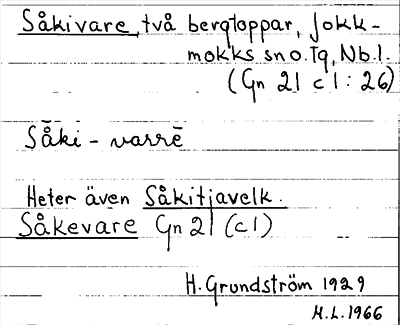 Såkivare, två bergtoppar, Jokk-
mokks sn o. tg, Nb.l.
(Gn 21 c 1 : 26)
Såki - varrē
Heter även Såkitjavelk.
Såkevare Gn 21 (c1)
H. Grundström 1929
H.L. 1966